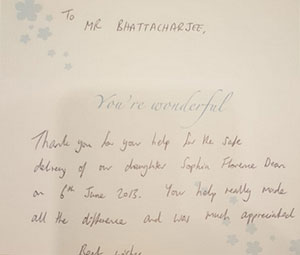 To
MR BHATTACHARJEE,
You're wonderful
Thank you for your help for the safe
delivery of our daughter Sophia Florence Dean
on 6th June 2013. Your help really made
all the difference and was much appreciated
Best wishes